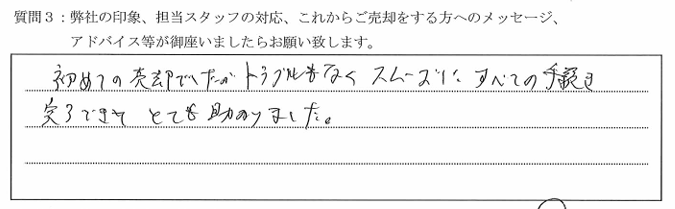 質問３：弊社の印象、担当スタッフの対応、これからご売却をする方へのメッセージ、
アドバイス等が御座いましたらお願い致します。
初めての売却でしたがトラブルもなく スムーズに すべての手続き
完了できて とても助かりました。